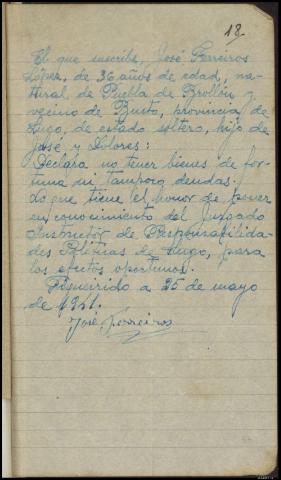 18.
El que suscribe, José Ferreiros
López, de 36 años de edad, na-
tural de Puebla de Brollón y
vecino de Busto, provincia de
Lugo, de estado soltero, hijo de
José y Dolores:
Declara no tener bienes de for-
tuna ni tampoco deudas.
Lo que tiene el honor de poner
en conocimiento del Juzgado
Instructor de Responsabilida-
des Políticas de Lugo, para
los efectos oportunos.
a 25 de mayo
de 1941.
José Ferreiros